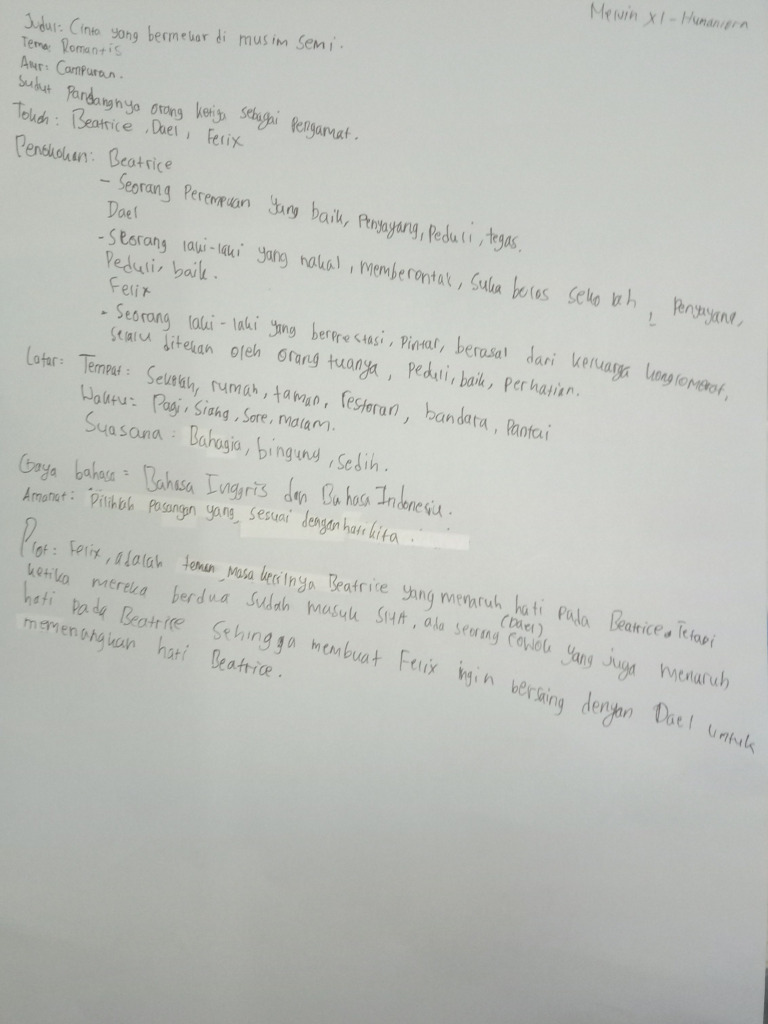 Melvin XI - Humaniora
Judul: Cinta yang bermekar di musim semi.
Tema: Romantis
Alur: Campuran.
Sudut Pandangnya orang ketiga sebagai pengamat.
Tokoh: Beatrice, Dael, Felix
Penokohan: Beatrice
- Seorang Perempuan yang baik, penyayang, peduli, tegas.
Dael
- Seorang laki-laki yang nakal, memberontak, suka bolos sekolah, penyayang,
Peduli, baik.
Felix
- Seorang laki-laki yang berprestasi, pintar, berasal dari keluarga konglomerat,
selalu ditekan oleh orang tuanya, peduli, baik, perhatian.
Latar: Tempat: Sekolah, rumah, taman, restoran, bandara, Pantai
Waktu: Pagi, Siang, Sore, malam.
Suasana: Bahagia, bingung, sedih.
Gaya bahasa = Bahasa Inggris dan Bahasa Indonesia.
Amanat: Pilihlah pasangan yang sesuai dengan hati kita.
Plot: Felix, adalah teman masa kecilnya Beatrice yang menaruh hati pada Beatrice. Tetapi
ketika mereka berdua sudah masuk SMA, ada seorang (Dael) cowok yang juga menaruh
hati pada Beatrice sehingga membuat Felix ingin bersaing dengan Dael untuk
memenangkan hati Beatrice.